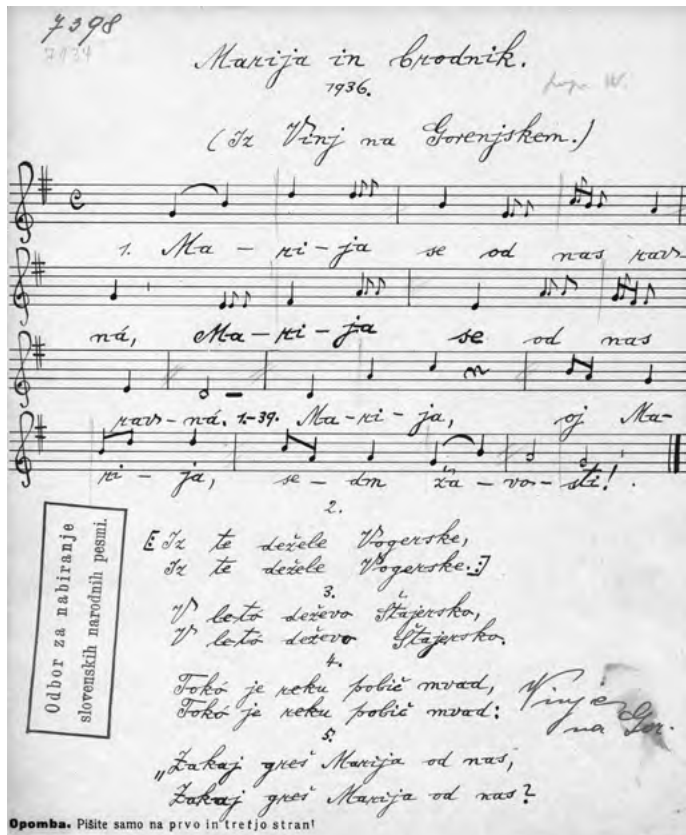 7398
7134
Marija in brodnik.
1936.
(Iz Vinj na Gorenjskem.)
1. Ma-ri-ja se od nas rav-
ná, Ma-ri-ja se od nas
rav-ná. 1.-39. Ma-ri-ja, oj Ma-
ri-ja, se-dm ža-vo-sti!
2.
[: Iz te dežele Vogerske,
Iz te dežele Vogerske. :]
3.
V letó deževo Štajersko,
V letó deževo Štajersko.
4.
Tokó je reku pobič mvad,
Tokó je reku pobič mvad:
5.
„Zakaj greš Marija od nas,
Zakaj greš Marija od nas?
Vinje
na Gor.
Odbor za nabiranje
slovenskih narodnih pesmi.
Opomba. Pišite samo na prvo in tretjo stran!